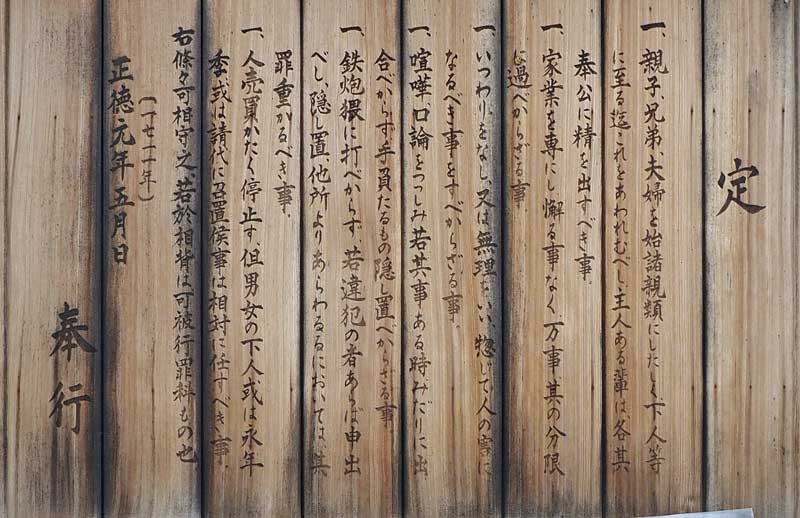 定
一、親子、兄弟、夫婦を始諸親類にしたしく、下人等
に至る迄これをあわれむべし、主人ある輩は、各其
奉公に精を出すべき事。
一、家業を専にし、懈る事なく、万事、其の分限
に過べからざる事
一、いつわりをなし、又は無理をいい、惣じて、人の害に
なるべき事をすべからざる事。
一、喧嘩、口論をつつしみ若其事ある時みだりに出
合べからず、手負たるもの隠し置べからざる事。
一、鉄炮猥に打べからず、若違犯の者あらば申出
べし、隠し置、他所よりあらわるるにおいては、其
罪重かるべき事。
一、人売買かたく停止す、但男女の下人或は永年
季、或は譜代に召置候事は相対に任すべき事。
右條々可相守之、若於相背は可被行罪科もの也
(一七一一年)
正徳元年五月日
奉行